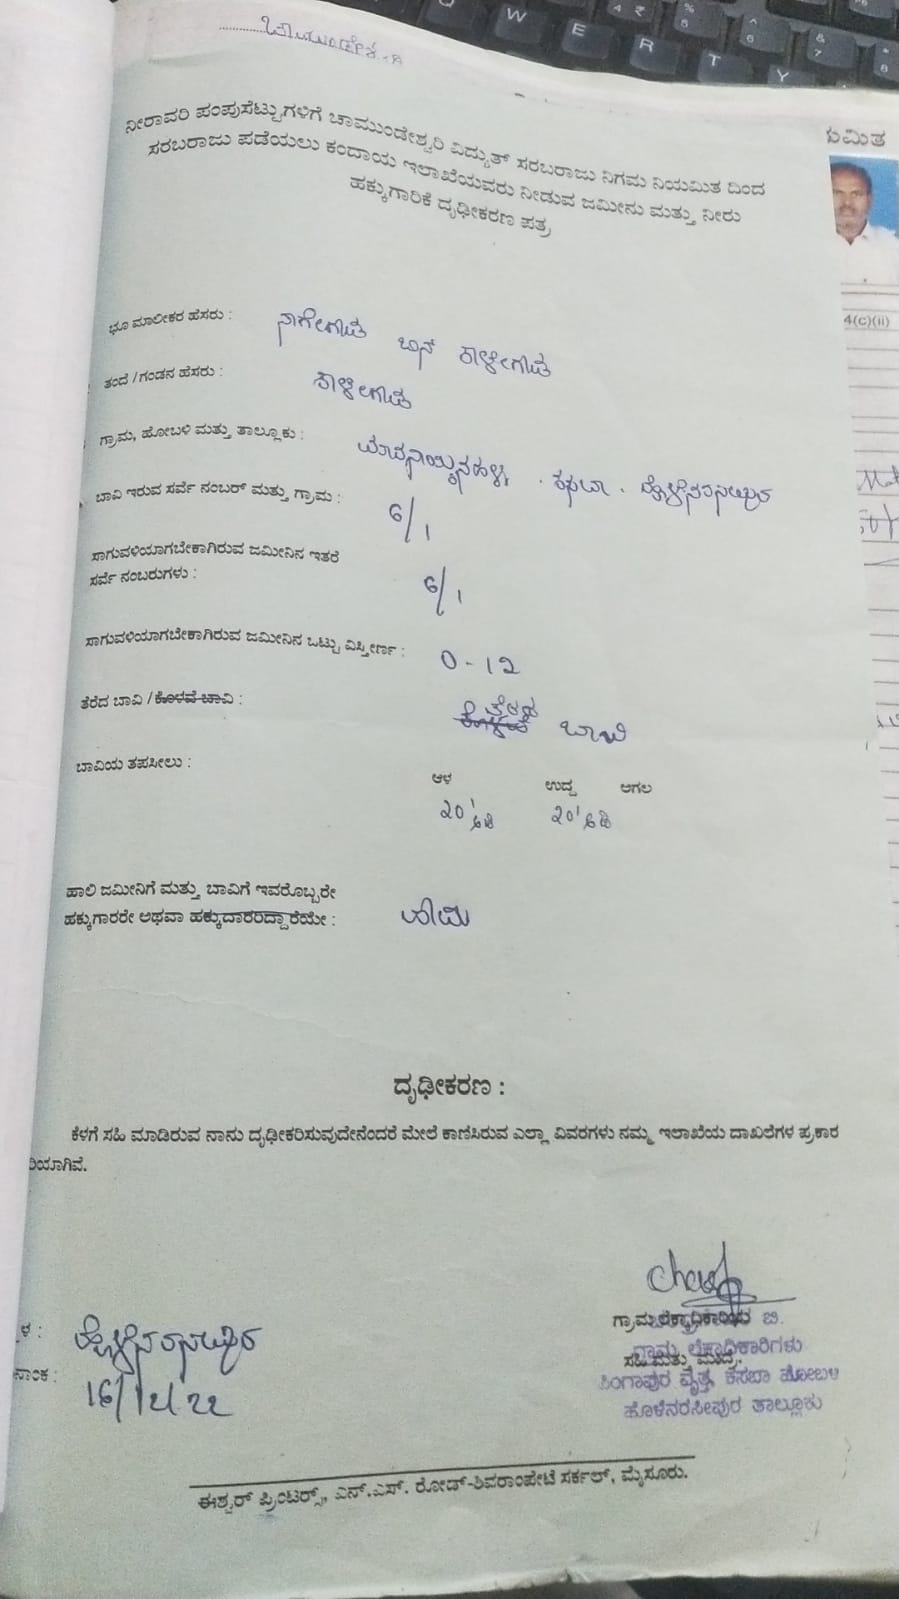 W E R T Y
ನೀರಾವರಿ ಪಂಪುಸೆಟ್ಟುಗಳಿಗೆ ಚಾಮುಂಡೇಶ್ವರಿ ವಿದ್ಯುತ್ ಸರಬರಾಜು ನಿಗಮ ನಿಯಮಿತ ದಿಂದ
ಸರಬರಾಜು ಪಡೆಯಲು ಕಂದಾಯ ಇಲಾಖೆಯವರು ನೀಡುವ ಜಮೀನು ಮತ್ತು ನೀರು
ಹಕ್ಕುಗಾರಿಕೆ ದೃಢೀಕರಣ ಪತ್ರ
4(c)(ii)
ಭೂ ಮಾಲೀಕರ ಹೆಸರು : ನಾಗೇಗೌಡ ಬಿನ್ ಕಾಳೇಗೌಡ
ತಂದೆ / ಗಂಡನ ಹೆಸರು : ಕಾಳೇಗೌಡ
ಗ್ರಾಮ, ಹೋಬಳಿ ಮತ್ತು ತಾಲ್ಲೂಕು : ಕಸಬಾ . ಹೊಳೆನರಸೀಪುರ
ಬಾವಿ ಇರುವ ಸರ್ವೆ ನಂಬರ್ ಮತ್ತು ಗ್ರಾಮ : 6/1
ಸಾಗುವಳಿಯಾಗಬೇಕಾಗಿರುವ ಜಮೀನಿನ ಇತರೆ
ಸರ್ವೆ ನಂಬರುಗಳು : 6/1
ಸಾಗುವಳಿಯಾಗಬೇಕಾಗಿರುವ ಜಮೀನಿನ ಒಟ್ಟು ವಿಸ್ತೀರ್ಣ : 0-12
ತೆರೆದ ಬಾವಿ / ಕೊಳವೆ ಬಾವಿ : ತೆರೆದ ಬಾವಿ
ಬಾವಿಯ ತಪಸೀಲು :
ಆಳ ಉದ್ದ ಅಗಲ
20' ಅಡಿ 20' ಅಡಿ
ಹಾಲಿ ಜಮೀನಿಗೆ ಮತ್ತು ಬಾವಿಗೆ ಇವರೊಬ್ಬರೇ
ಹಕ್ಕುಗಾರರೇ ಅಥವಾ ಹಕ್ಕುದಾರರಿದ್ದಾರೆಯೇ :
ದೃಢೀಕರಣ :
ಕೆಳಗೆ ಸಹಿ ಮಾಡಿರುವ ನಾನು ದೃಢೀಕರಿಸುವುದೇನೆಂದರೆ ಮೇಲೆ ಕಾಣಿಸಿರುವ ಎಲ್ಲಾ ವಿವರಗಳು ನಮ್ಮ ಇಲಾಖೆಯ ದಾಖಲೆಗಳ ಪ್ರಕಾರ
ರಿಯಾಗಿವೆ.
ಳ : ಹೊಳೆನರಸೀಪುರ
ನಾಂಕ : 16/12/22
ಗ್ರಾಮ ಲೆಕ್ಕಾಧಿಕಾರಿಯ
ಸಹಿ ಮತ್ತು ಮುದ್ರೆ.
ಗ್ರಾಮ ಲೆಕ್ಕಾಧಿಕಾರಿಗಳು
ಸಿಂಗಾಪುರ ವೃತ್ತ, ಕಸಬಾ ಹೋಬಳಿ
ಹೊಳೆನರಸೀಪುರ ತಾಲ್ಲೂಕು
ಈಶ್ವರ್ ಪ್ರಿಂಟರ್ಸ್, ಎನ್.ಎಸ್. ರೋಡ್-ಶಿವರಾಂಪೇಟೆ ಸರ್ಕಲ್, ಮೈಸೂರು.